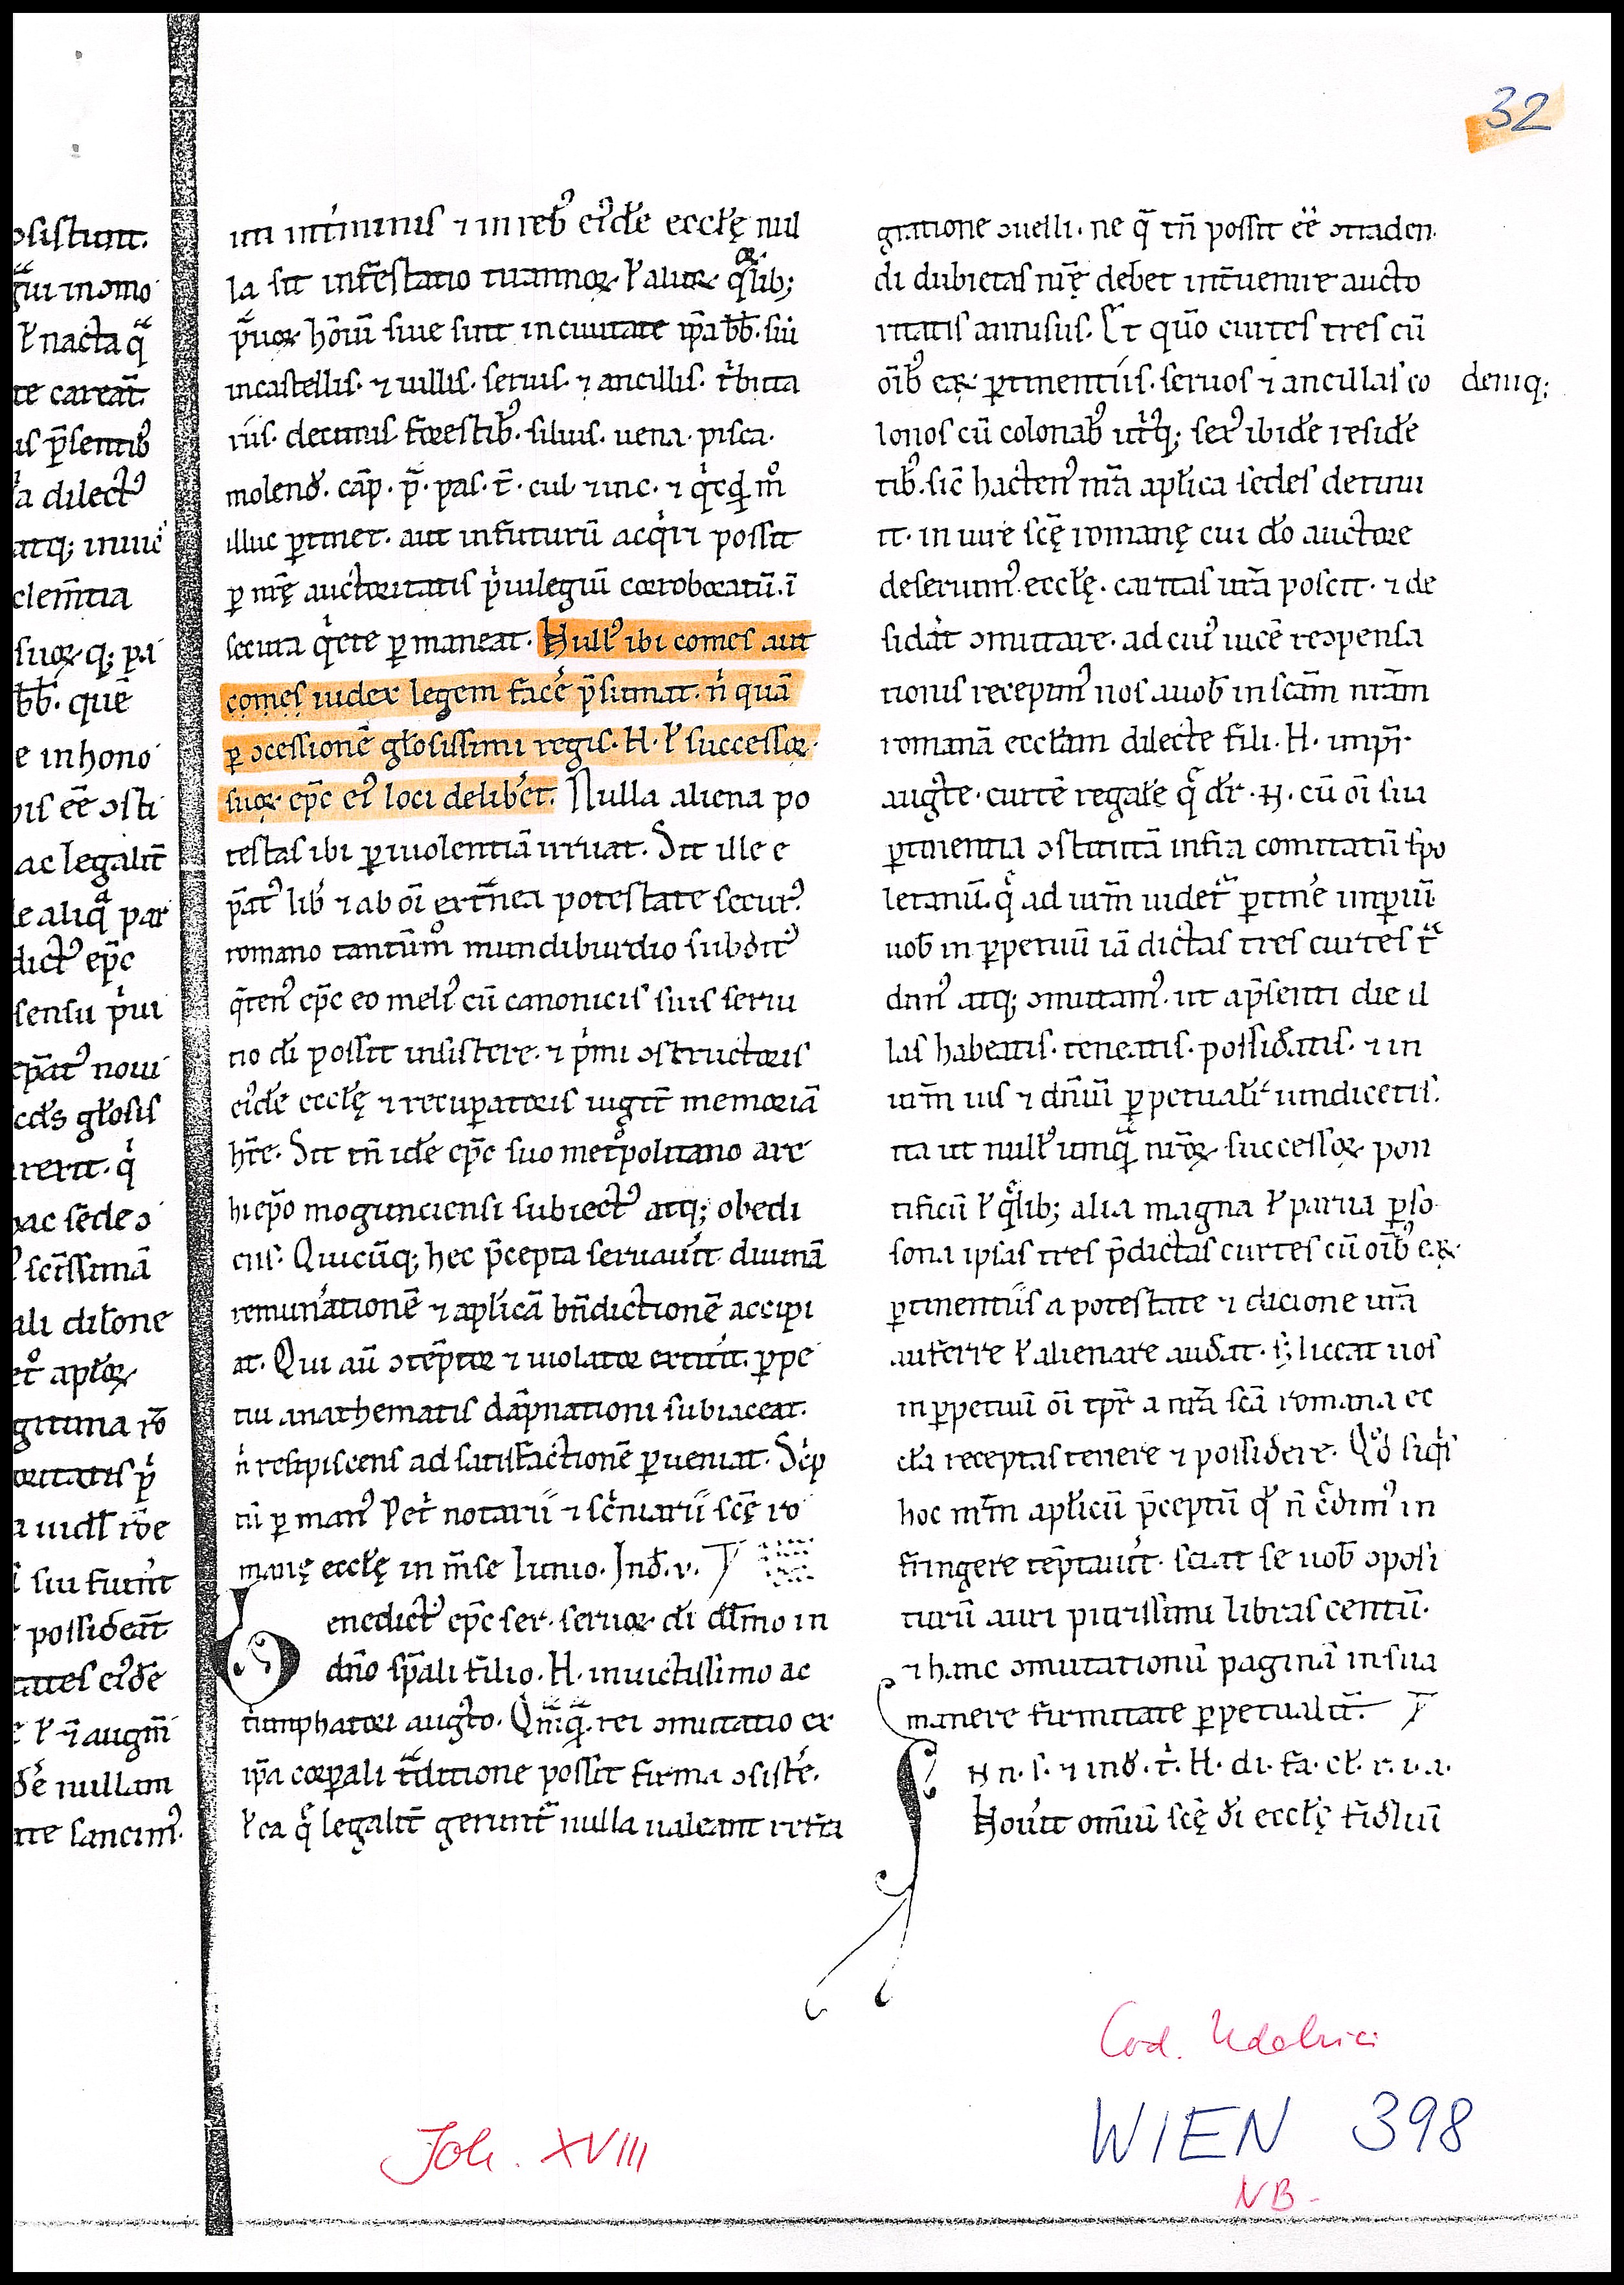 32
osistunt.
gui inomo
ł nacta q̄
te careat.
is p̄sentib᷒
a dilect᷒
atq; inuic̄
clem̄tia
suoꝝ q; pa
bb̄. quē
e in hono
pis eē ↄsti
ac legalit̄
le aliq̄ par
dict᷒ ep̄c
sensu p̍ui
ep̄at᷒ noui
ceds głosis
rerit. q̍
hac sēde ↄ
scissimā
ali dic̄one
et᷒ apłoꝝ
gitima rō
oritatis p̍
a uidł ide
i sui fuerīt
possideāt
tates ei᷒dē
ł in augm̄
dē nullam
tate sancim᷒.
im intimitis ⁊ in reb᷒ ei᷒dē eccłę nul
la sit infestatio tirannoꝝ ł alioꝝ q̄lib;
p̄uoꝝ hōiū siue sint in ciuitate ip̄a bb̄. siū
in castellis. ⁊ uillis. seruis. ⁊ ancillis. t̍buta
riis. decimis forestib᷒. siluis. uena. pisca.
molend̄. cāp. p̄. pas. t̄. cul ⁊ inc. ⁊ q̍cq̍d m̊
illuc ꝑtinet. aut in futurū acq̍ri possit
ꝑ nr̄ę auctoritatis p̍uilegiū corroboratū. ī
secuta q̍ete ꝑmaneat. Null᷒ ibi comes aut
comes iudex legem facē p̄sumat. n̍ quā
ꝑ ↄcessionē głosissimi regis. H. ł successoꝝ
suoꝝ ep̄c ei᷒ loci delib̄et. Nulla aliena po
testas ibi ꝑ uiolentiā irruat. Sit ille e
p̄at᷒ lib̍ ⁊ ab oī extn̄ea potestate secur᷒.
romano tantūm̊ mundiburdio subdit᷒
q̄ten᷒ ep̄c eo meli᷒ cū canonicis suis serui
tio di possit insistere. ⁊ p̍mi ↄstructoris
ei᷒dē eccłę ⁊ recuꝑatoris iugit̄ memoriā
hr̄e. Sit tn̄ idē ep̄c suo met̊politano arc
hiep̄o mogunciensi subiect᷒ atq; obedi
ens. Quicūq; hec p̄cepta seruauīt diuinā
remun̄ationē ⁊ apl̄icā bn̄dictionē accipi
at. Qui aū ↄtēptor ⁊ uiolator extiīt. ꝑpe
tui anathematis dāpnationi subiaceat.
n̍ resipiscens ad satisfactionē ꝑueniat. Sc̍p
tū ꝑ man᷒ Pet̍ notarii ⁊ sc̍niarii sc̄ę ro
manę eccłę in m̄se Iunio. Ind̄. v.
Benedict᷒ ep̄c ser. seruoꝝ di dil̄mo in
dn̄o sp̄ali filio. H. inuictissimo ac
t̍umphatori augto. Qm̄q̄. rei ↄmutatio ex
ip̄a corꝑali t̄ditione possit firma ↄsistē.
ł ea q̄ legalit̄ gerunt᷒ nulla ualeant refra
gratione ↄuelli. ne q̄ tn̄ possit eē ↄtraden
di dubietas nr̄ę debet int̄uenire aucto
ritatis annisus. Et quō curtes tres cū
oīb᷒ eaꝝ ꝑtinentiis. seruos ⁊ ancillas co
deniq;
lonos cū colonab᷒ utiq; sex᷒ ibidē residē
tib᷒. sic̄ hacten᷒ nr̄a apl̄ica sedes detinu
it. in iure sc̄ę romanę cui do auctore
deseruim᷒. eccłę. caritas ur̄a poscit. ⁊ de
siderat ↄmutare. ad cui᷒ uicē reↄpensa
tionis recepim᷒ nos a uob̄ in scām nrām
romanā eccłam dilecte fili. H. impr̄.
augte. curtē regalē q̄ dr̄. H. cū oī sua
ꝑtinentia ↄstitutā infra comitatū spo
letanū. q̄ ad ur̄m uidet̄ ꝑtinē imꝑiū.
uob̄ in ꝑpetuū iā dictas tres curtes t̄
dim᷒ atq; ↄmutam᷒. ut a p̄senti die il
las habeatis. teneatis. possideatis. ⁊ in
ur̄m ius ⁊ dn̄iū ꝑpetualit̍ uindicetis.
ita ut null᷒ umq̄ nr̄oꝝ successoꝝ pon
tificū ł q̄lib; alia magna ł parua ꝑso
sona ipsas tres p̄dictas curtes cū oīb᷒ eaꝝ
ꝑtinentiis a potestate ⁊ dicione ur̄a
auferre ł alienare audeat. s; liceat uos
in ꝑpetuū oī tpr̄ a nr̄a scā romana ec
cła receptas tenere ⁊ possidere. Qd̊ siq̍s
hoc nr̄m apl̄icū p̄ceptū qd̄ n̄ c̄dim᷒ in
fringere teptauīt. sciat se uob̄ ↄposi
turū auri purissimi libras centū.
⁊ hanc ↄmutationū paginā in sua
manere firmitate ꝑpetualit̄.
In n. s. ⁊ ind̄. t̍. H. di. fa. cł. r. i. a.
Nouīt omiū scę di eccłę fideliū
Cod. Udalrici
WIEN 398
NB-
Joh. XVIII